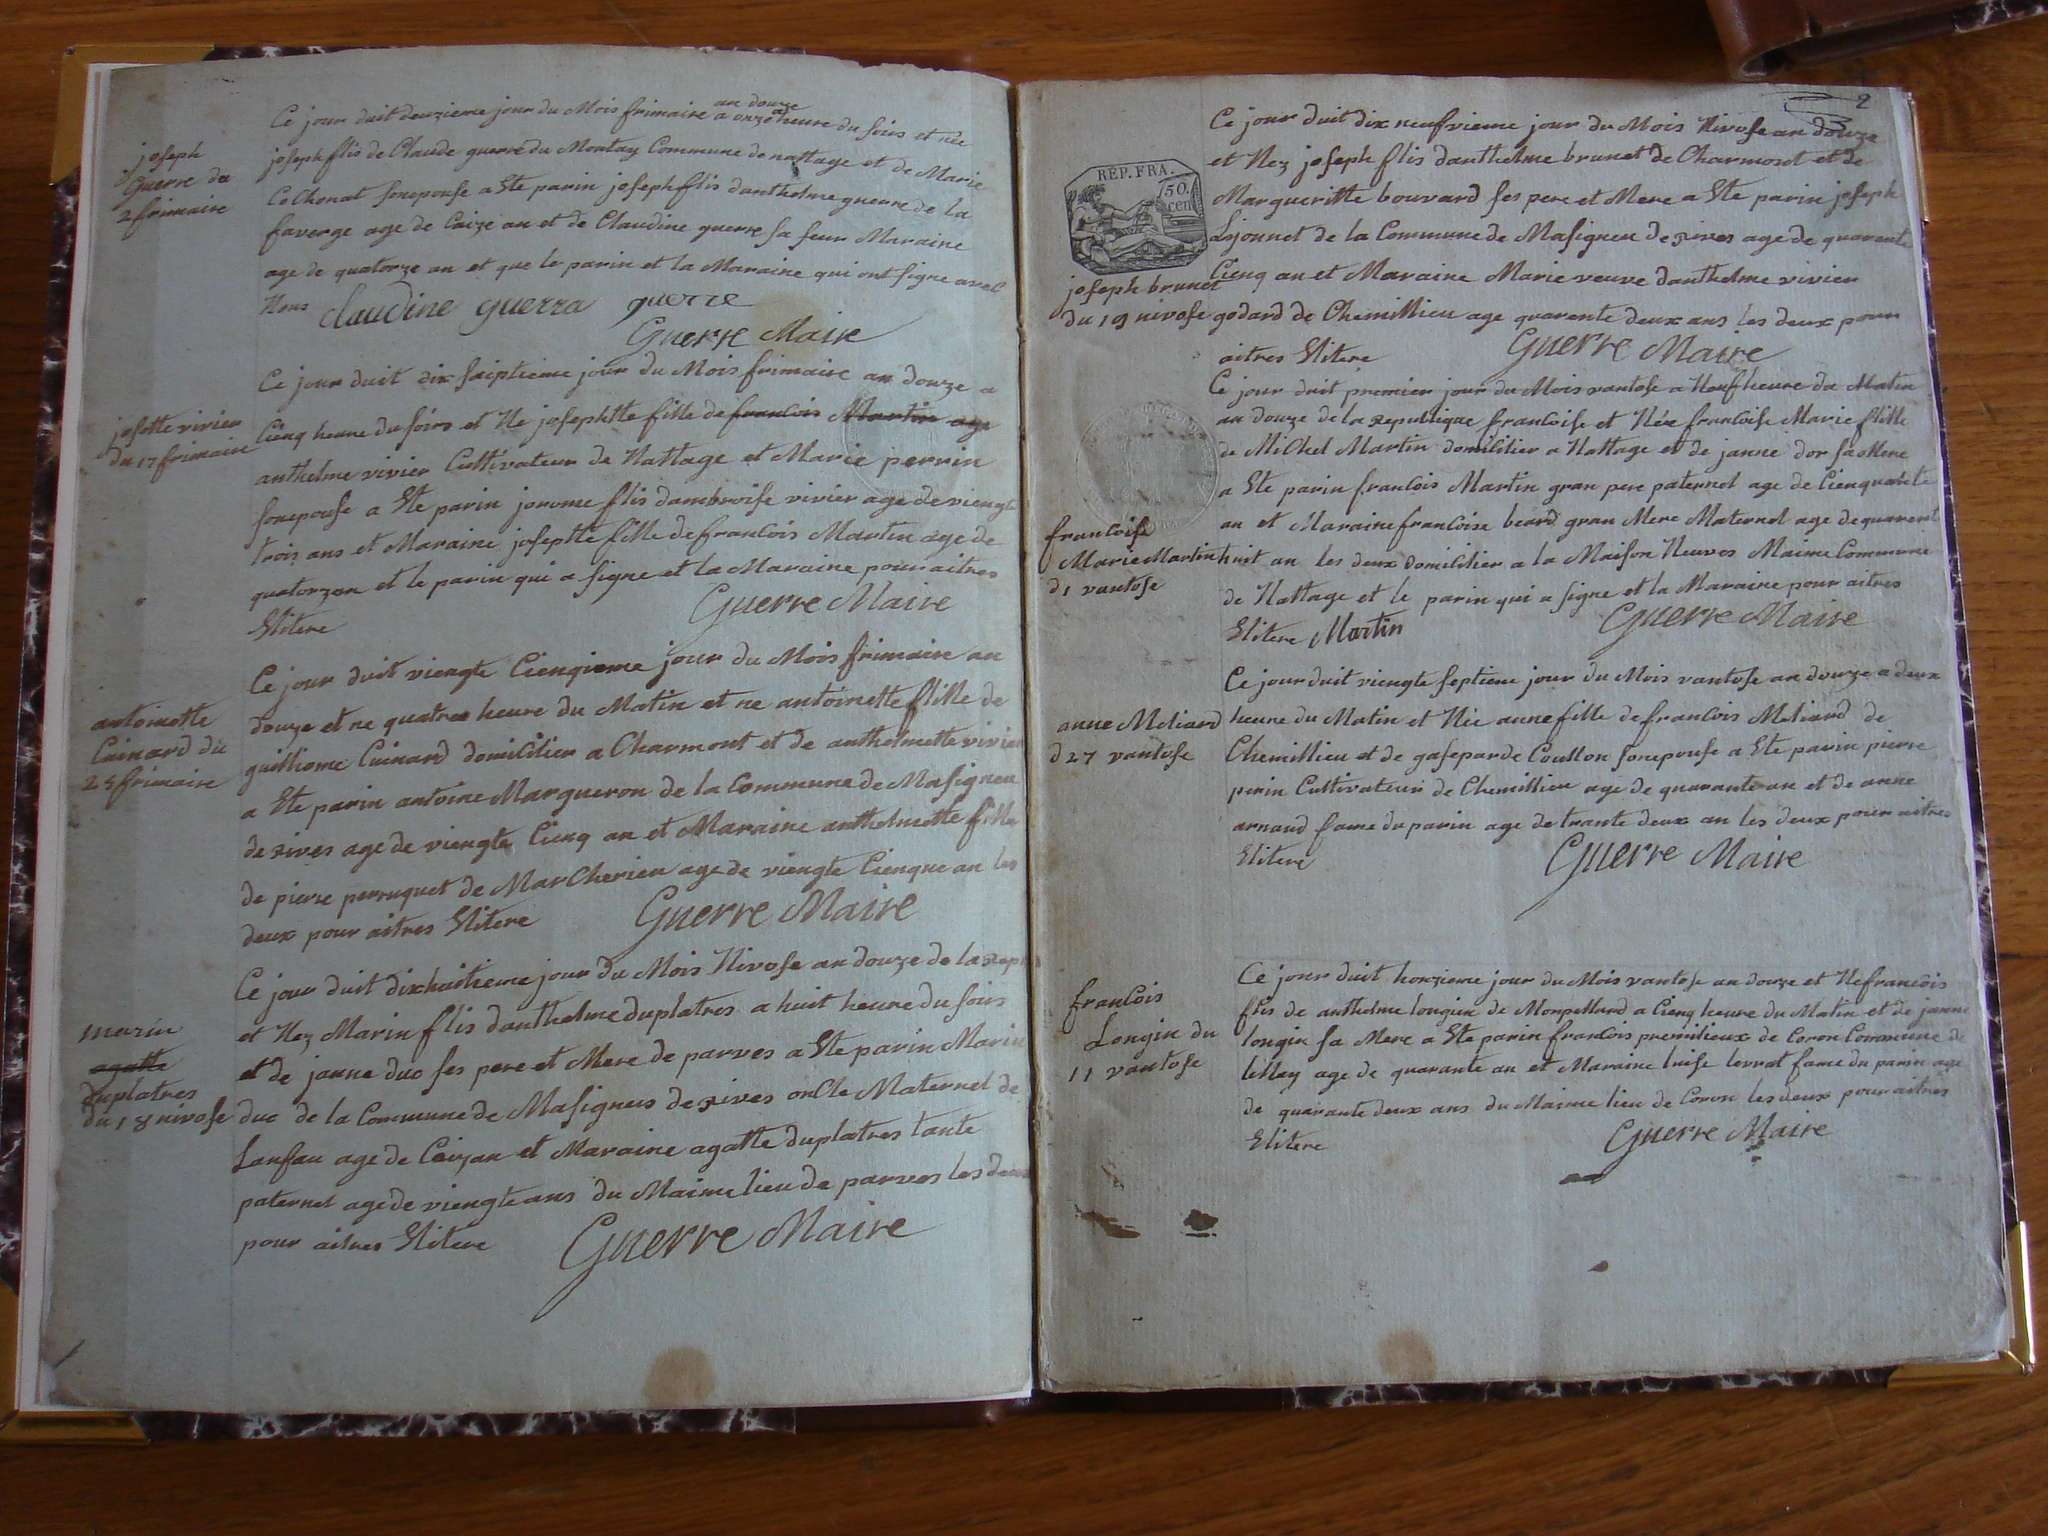 joseph
Guerre du
2 frimaire
an douze
Ce jour duit deuzieme jour du Mois frimaire a onze heure du soirs et née
joseph flis de Claude guerre du Montay Commune de nattage et de Marie
CoChonat sonepouse a Ete parin joseph flis danthelme guerre de la
faverge age de Caize an et de Claudine guerre sa seur Maraine
age de quatorze an et que le parin et la Maraine qui ont signe avel
Nous claudine guerra guerre
Guerre Maire
josette vivier
du 17 frimaire
Ce jour duit dix saiptieme jour du Mois frimaire an douze a
Cienq heure du soirs et Ne josephtte fille de francois Martin age
anthelme vivier Cultivateur de Nattage et Marie perrin
sonepouse a Ete parin jerome flis dambroise vivier age de viengte
trois ans et Maraine joseptte fille de francois Martin age de
quatorzan et le parin qui a signe et la Maraine pour aitres
Elitere
Guerre Maire
antoinette
Cuinard du
25 frimaire
Ce jour duit viengte Cienqieme jour du Mois frimaire an
douze et ne quatres heure du Matin et ne antoinette flille de
guilliome Cuinard domicilier a Charmont et de anthelmette vivier
a Ete parin antoine Margueron de la Commune de Masigneu
de rives age de viengte Cienq an et Maraine anthelmette fille
de pierre perruquet de MarCherieu age de viengte Cienque an les
deux pour aitres Elitere
Guerre Maire
marin
agatte
duplatres
du 18 nivose
Ce jour duit dixhuitieme jour du Mois Nivose an douze de la rep
et Nez Marin flis danthelme duplatres a huit heure du soirs
et de janne duc ses pere et Mere de parves a Ete parin Marin
duc de la Commune de Masigneus de rives onCle Maternel de
Lansau age de Caizan et Maraine agatte duplatres tante
paternel age de viengte ans du Maime lieu de parves les deux
pour aitres Elitere
Guerre Maire
2
REP. FRA.
50.
cen
joseph brunet
du 19 nivose
Ce jour duit dix neufvieme jour du Mois Nivose an douze
et Nez joseph flis danthelme brunet de Charmont et de
Margueritte bouvard ses pere et Mere a Ete parin joseph
Lejonnet de la Commune de Masigneu de rives age de quarente
Cienq an et Maraine Marie veuve danthelme vivien
godard de Chemillieu age quarente deux ans les deux pour
aitres Elitere
Guerre Maire
francoise
Marie Martin
d 1 vantose
Ce jour duit premier jour du Mois vantose a Neuf heure du Matin
an douze de la republique francoise et Née francoise Marie flille
de Michel Martin domilitier a Nattage et de janne dor sa Mere
a Ete parin francois Martin gran pere paternel age de Cienquante
an et Maraine francoise beard gran Mere Maternel age de quarent
huit an les deux domilitier a la Maison Neuves Maime Commune
de Nattage et le parin qui a signe et la Maraine pour aitres
Elitere Martin
Guerre Maire
anne Meliard
d 27 vantose
Ce jour duit viengte septieme jour du Mois vantose an douze a deux
heure du Matin et Née anne fille de francois Meliard de
Chemillieu et de gaseparde Coullon sonepouse a Ete parin pierre
perin Cultivateur de Chemillieu age de quarante an et de anne
arnaud fame du parin age de trante deux an les deux pour aitres
Elitere
Guerre Maire
francois
Longin du
11 vantose
Ce jour duit honzieme jour du Mois vantose an douze et Ne francois
flis de anthelme longin de Monpellard a Cienq heure du Matin et de janne
longin sa Mere a Ete parin francois premilieux de Coron Commune de
age de quarante an et Maraine luise levrat fame du parin age
de quarante deux ans du Maime lieu de Coron les deux pour aitres
Elitere
Guerre Maire